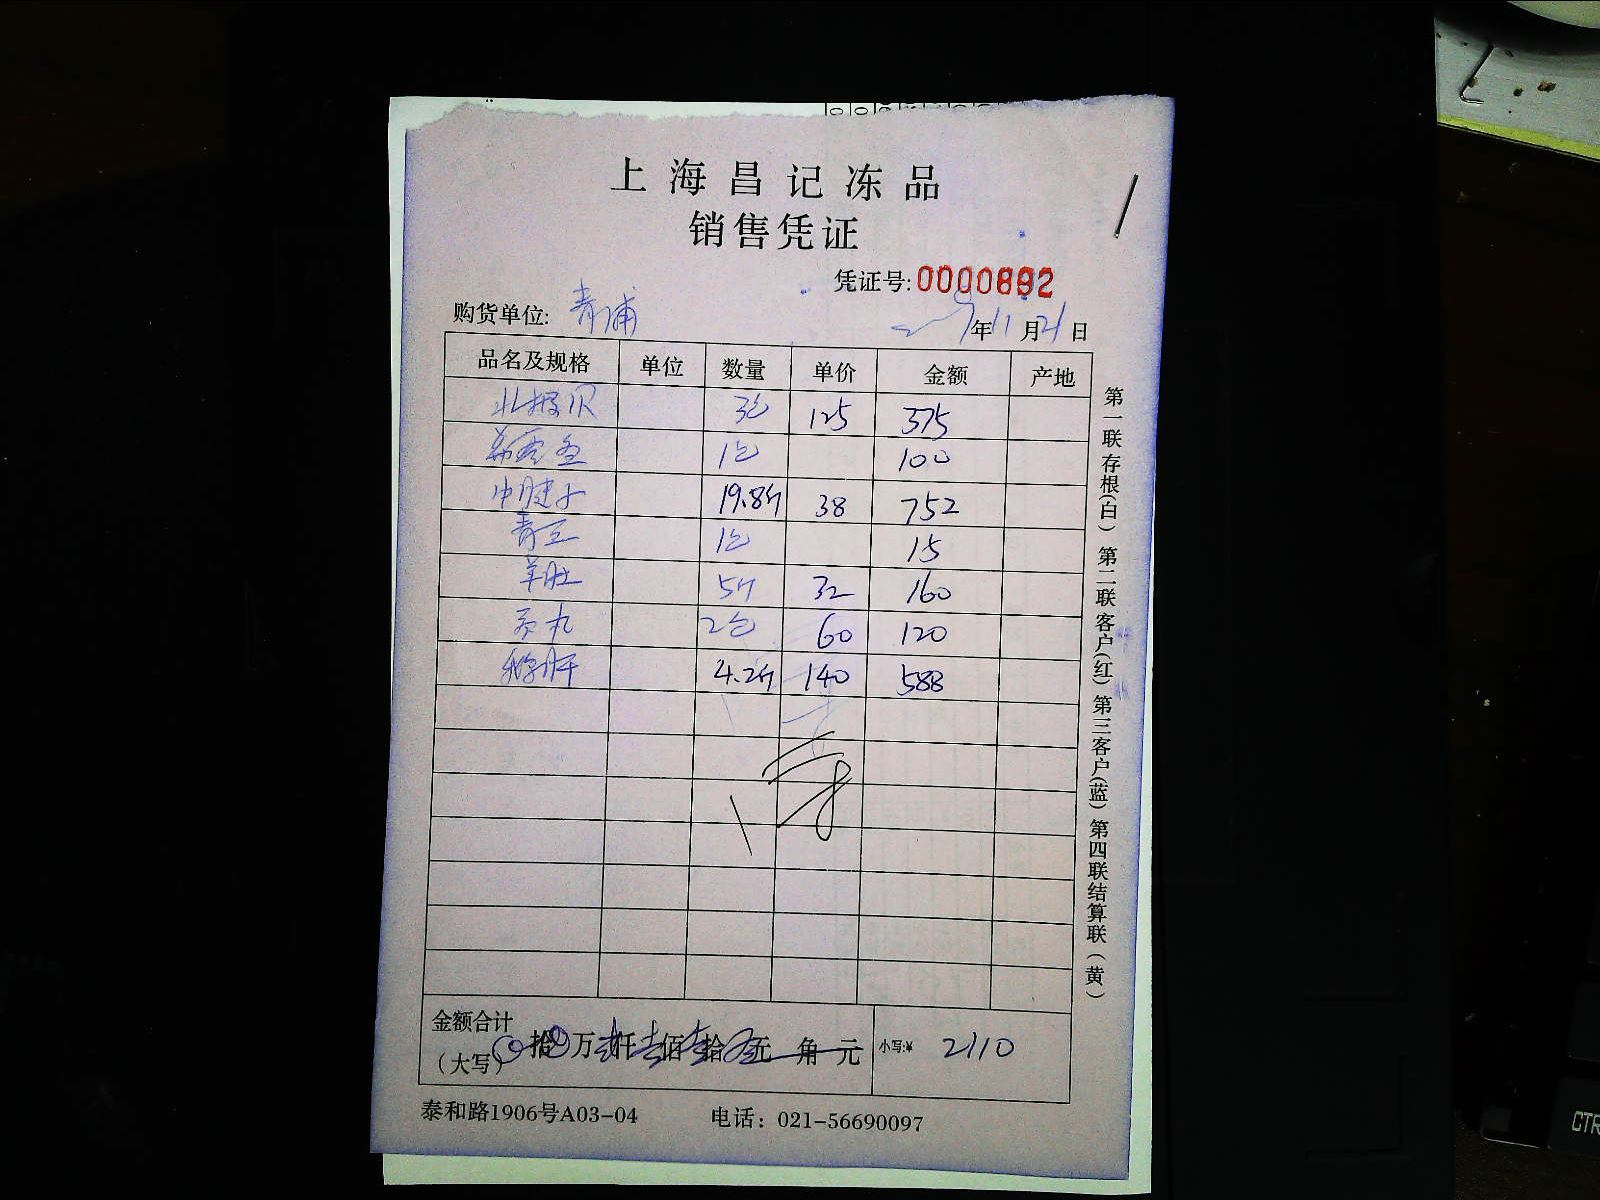 上海昌记冻品
销售凭证
凭证号:0000892
购货单位: 青浦 年11月21日
品名及规格 单位 数量 单价 金额 产地
北极贝 3包 125 375
1包 100
牛腱子 19.8斤 38 752
青豆 1包 15
羊肚 5斤 32 160
丸 2包 60 120
鹅肝 4.2斤 140 588
金额合计
(大写) 拾 万 仟 佰 拾 元 角 元 小写:¥ 2110
泰和路1906号A03-04 电话：021-56690097
第一联存根(白) 第二联客户(红) 第三客户(蓝) 第四联结算联(黄)
CTR